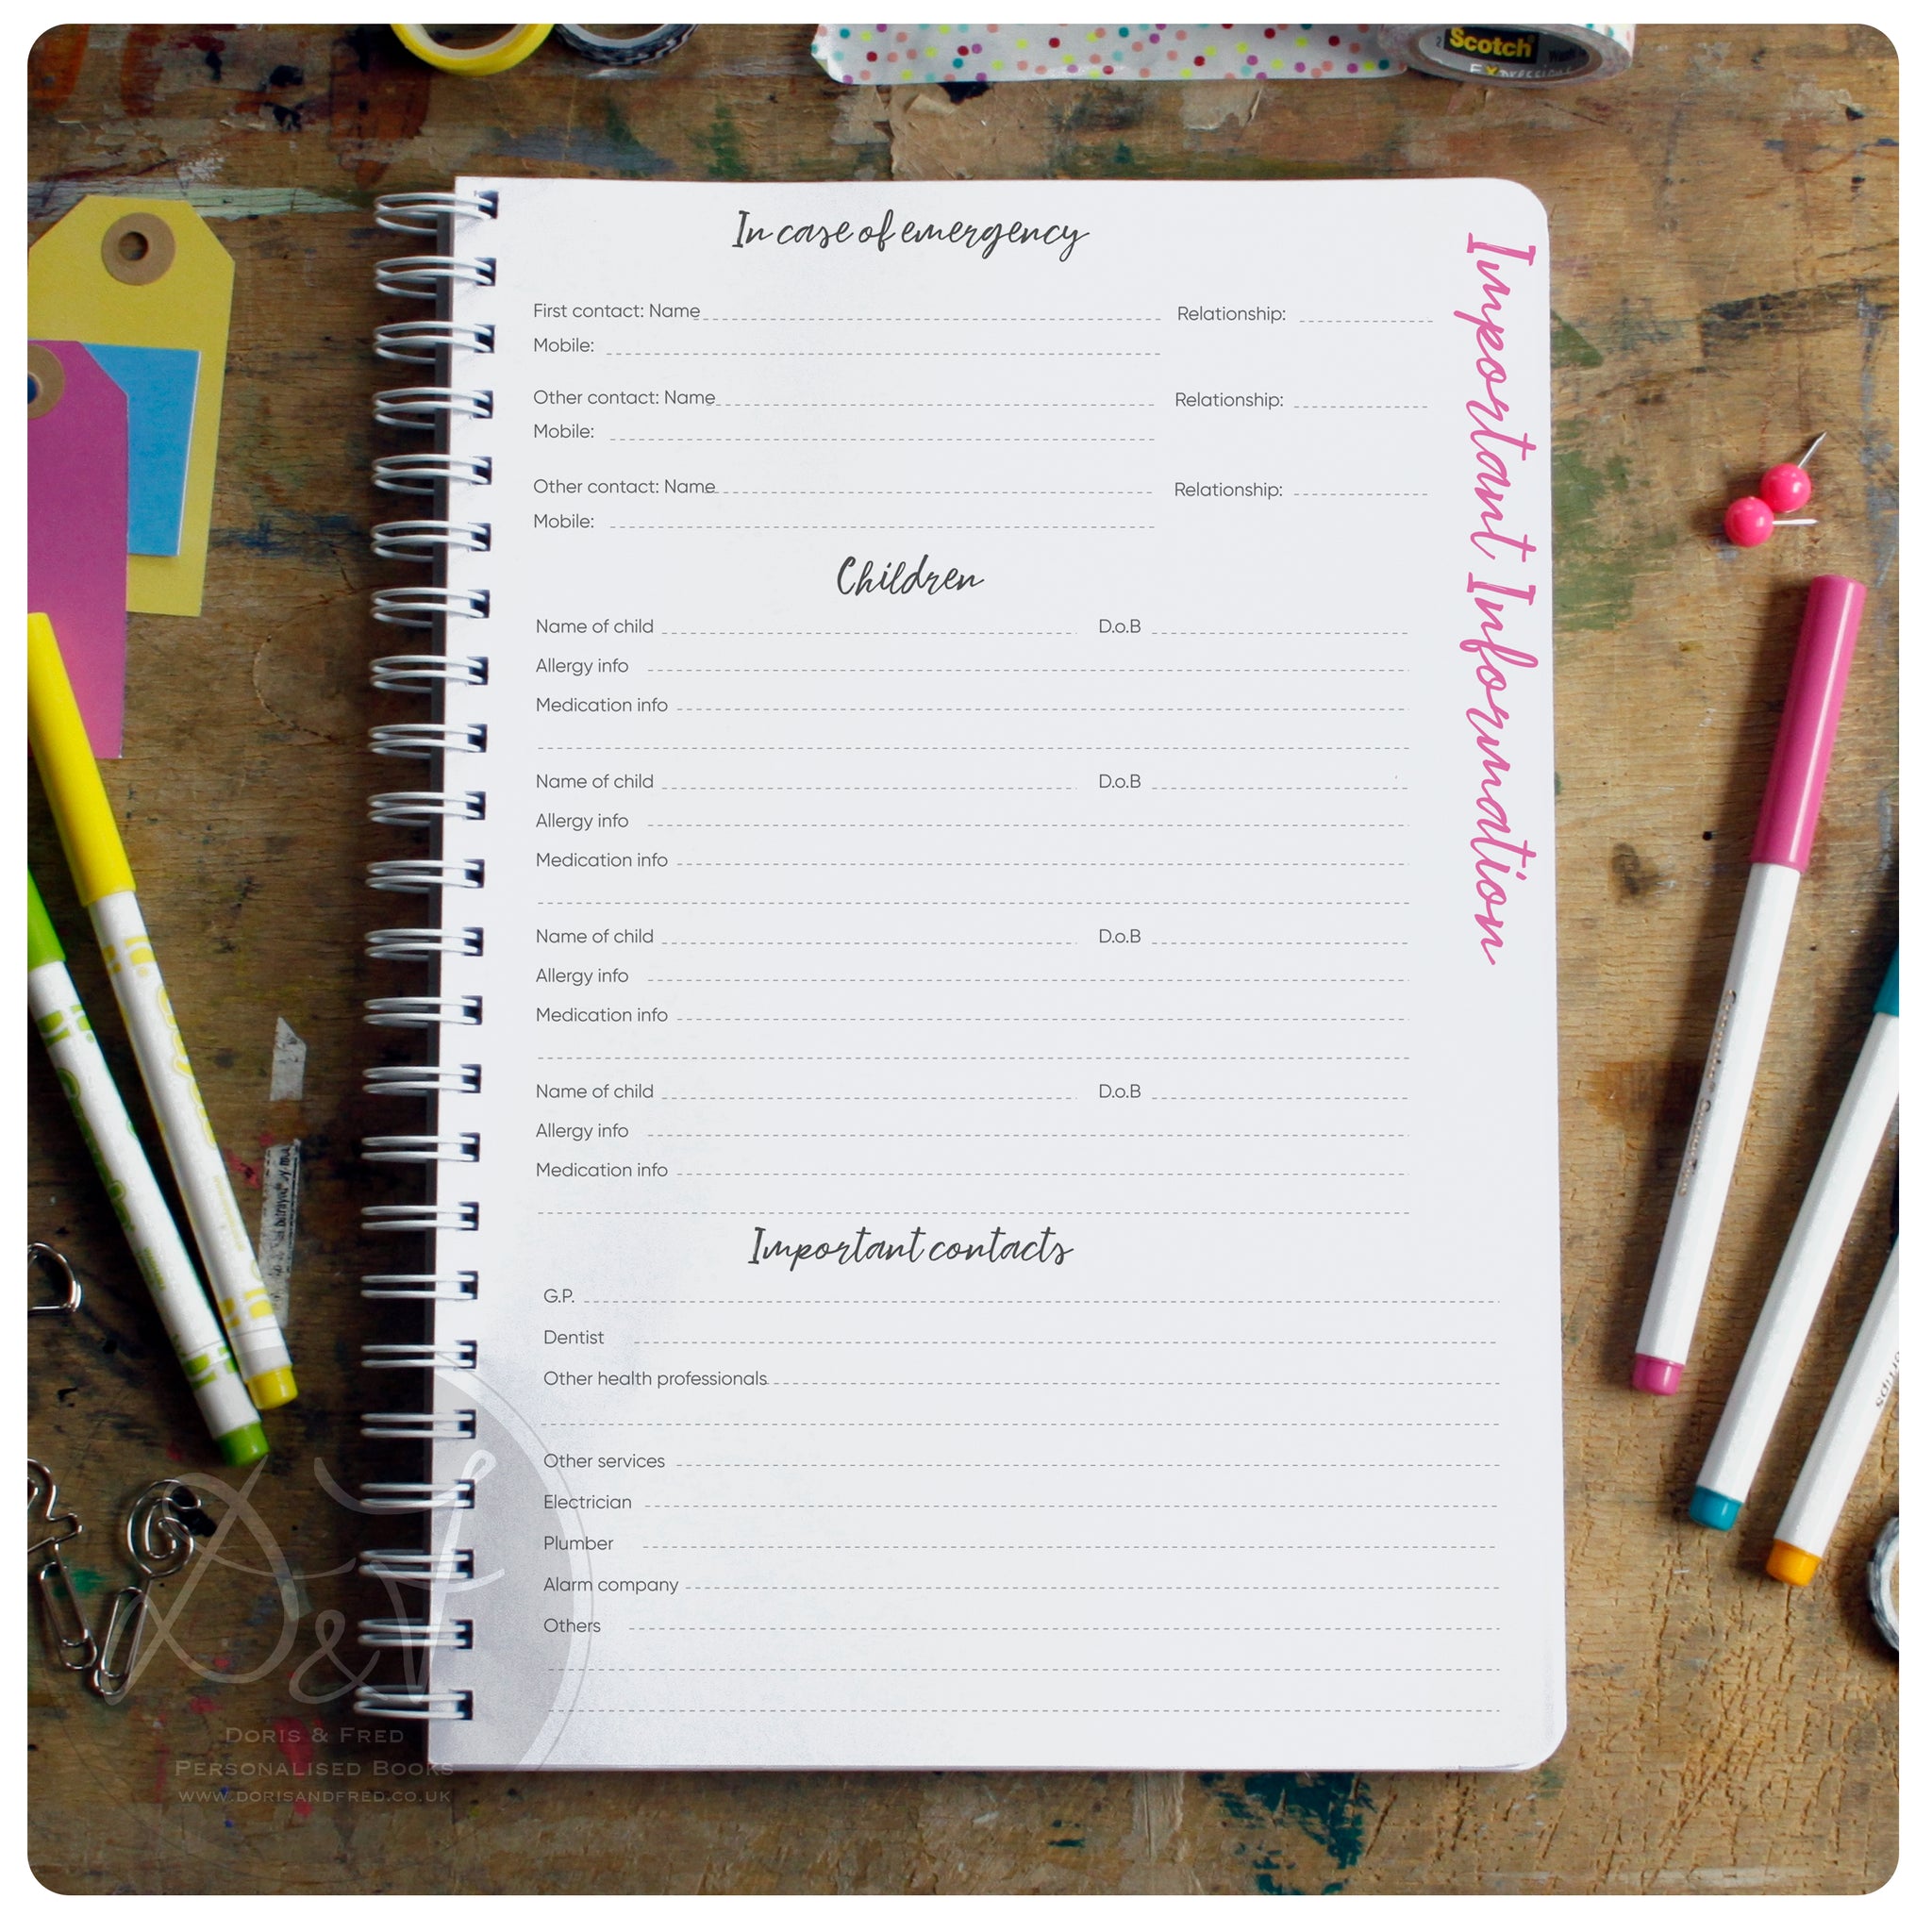 Scotch
Expressions
In case of emergency
Important Information
First contact: Name Relationship:
Mobile:
Other contact: Name Relationship:
Mobile:
Other contact: Name Relationship:
Mobile:
Children
Name of child D.o.B
Allergy info
Medication info
Name of child D.o.B
Allergy info
Medication info
Name of child D.o.B
Allergy info
Medication info
Name of child D.o.B
Allergy info
Medication info
Important contacts
G.P.
Dentist
Other health professionals
Other services
Electrician
Plumber
Alarm company
Others
D&F
Doris & Fred
Personalised Books
www.dorisandfred.co.uk